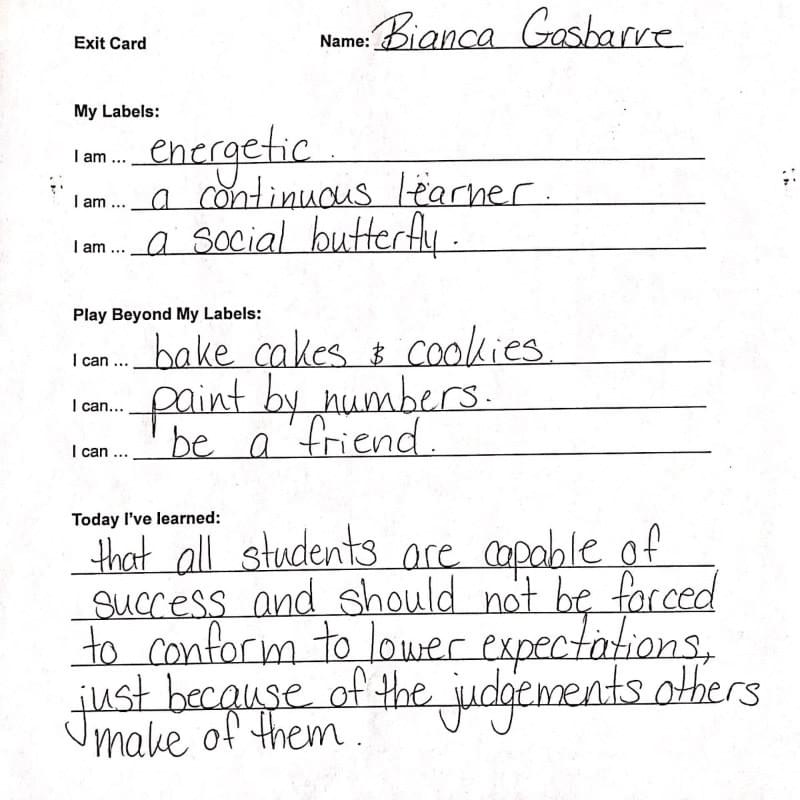 Exit Card Name: Bianca Gasbarre
My Labels:
I am ... energetic.
I am ... a continuous learner.
I am ... a social butterfly.
Play Beyond My Labels:
I can ... bake cakes & cookies.
I can... paint by numbers.
I can ... be a friend.
Today I've learned:
that all students are capable of
success and should not be forced
to conform to lower expectations,
just because of the judgements others
make of them.